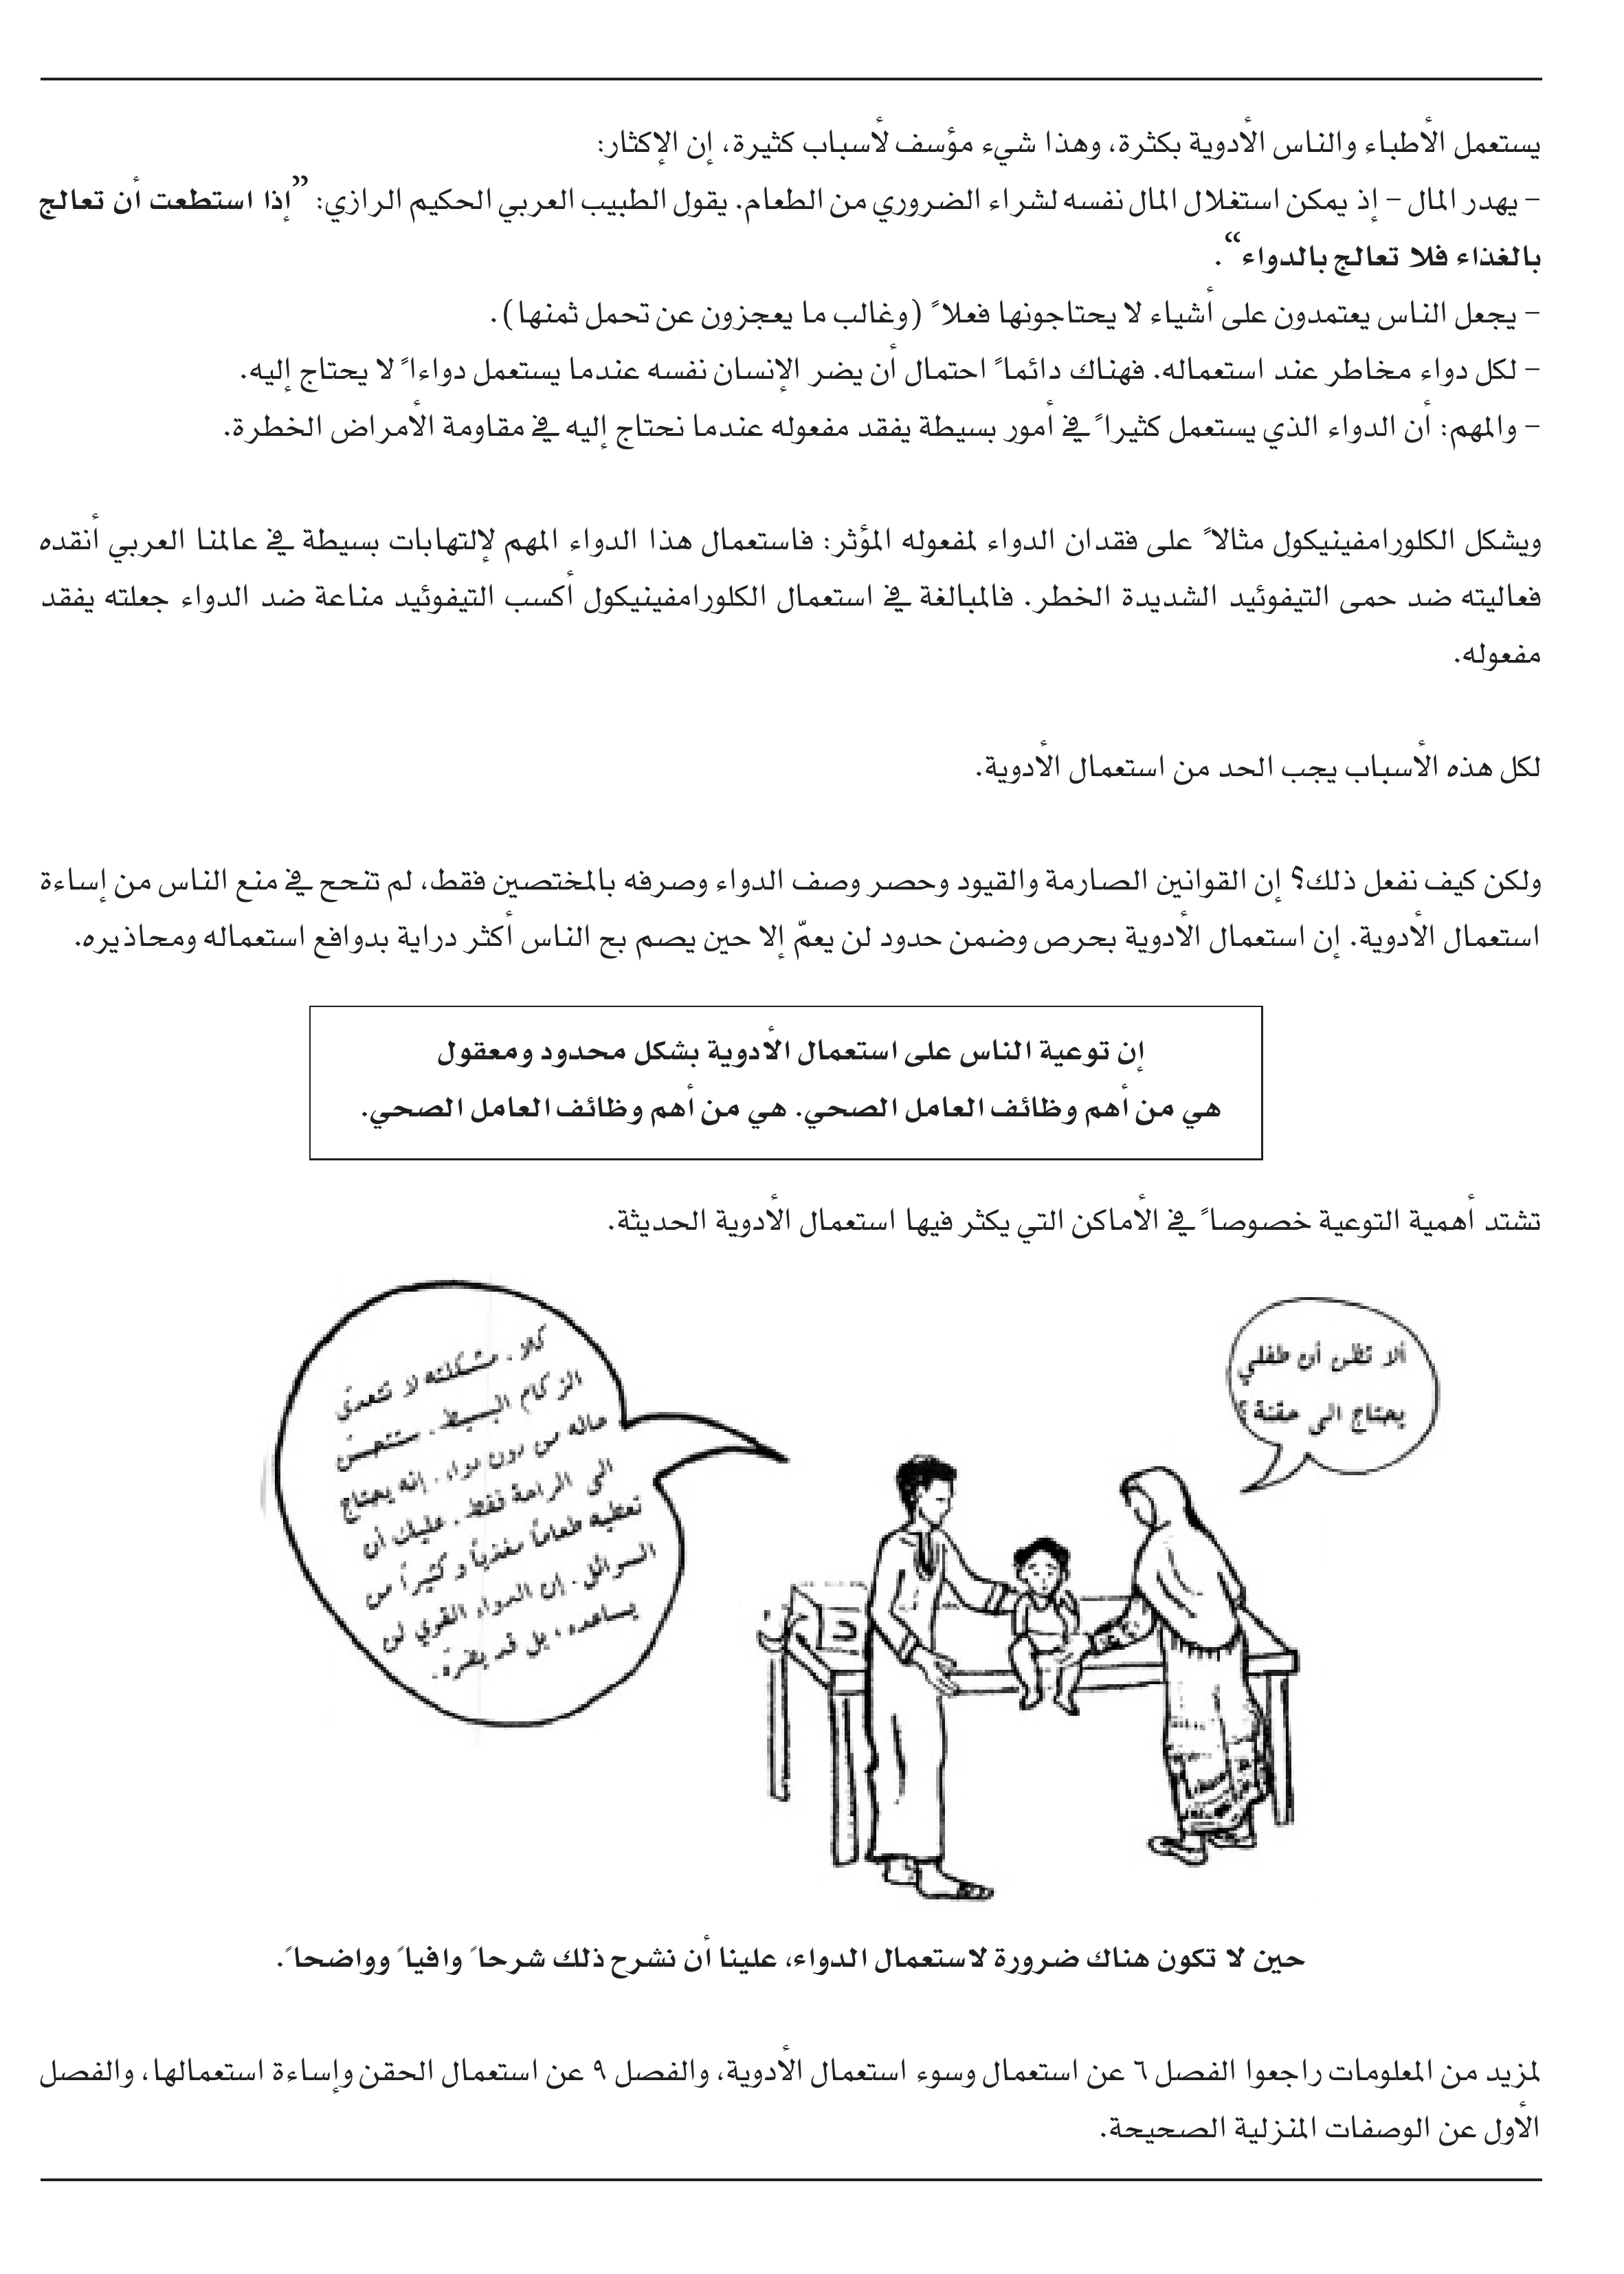 يستعمل الأطباء والناس الأدوية بكثرة، وهذا شيء مؤسف لأسباب كثيرة، إن الإكثار:
– يهدر المال – إذ يمكن استغلال المال نفسه لشراء الضروري من الطعام. يقول الطبيب العربي الحكيم الرازي: ”إذا استطعت أن تعالج
بالغذاء فلا تعالج بالدواء“.
– يجعل الناس يعتمدون على أشياء لا يحتاجونها فعلاً (وغالب ما يعجزون عن تحمل ثمنها).
– لكل دواء مخاطر عند استعماله. فهناك دائماً احتمال أن يضر الإنسان نفسه عندما يستعمل دواءاً لا يحتاج إليه.
– والمهم: أن الدواء الذي يستعمل كثيراً في أمور بسيطة يفقد مفعوله عندما نحتاج إليه في مقاومة الأمراض الخطرة.
ويشكل الكلورامفينيكول مثالاً على فقدان الدواء لمفعوله المؤثر: فاستعمال هذا الدواء المهم لإلتهابات بسيطة في عالمنا العربي أنقده
فعاليته ضد حمى التيفوئيد الشديدة الخطر. فالمبالغة في استعمال الكلورامفينيكول أكسب التيفوئيد مناعة ضد الدواء جعلته يفقد
مفعوله.
لكل هذه الأسباب يجب الحد من استعمال الأدوية.
ولكن كيف نفعل ذلك؟ إن القوانين الصارمة والقيود وحصر وصف الدواء وصرفه بالمختصين فقط، لم تنحح في منع الناس من إساءة
استعمال الأدوية. إن استعمال الأدوية بحرص وضمن حدود لن يعمّ إلا حين يصم بح الناس أكثر دراية بدوافع استعماله ومحاذيره.
إن توعية الناس على استعمال الأدوية بشكل محدود ومعقول
هي من أهم وظائف العامل الصحي. هي من أهم وظائف العامل الصحي.
تشتد أهمية التوعية خصوصاً في الأماكن التي يكثر فيها استعمال الأدوية الحديثة.
ألا تظن أن طفلي
يحتاج الى حقنة؟
كلا. مشكلته لا تتعدى
الزكام البسيط. ستتحسن
حاله من دون دواء. إنه يحتاج
الى الراحة فقط. عليك أن
تعطيه طعاماً مغذياً وكثيراً من
السوائل. إن الدواء القوي لن
يساعده، بل قد يضرّه.
حين لا تكون هناك ضرورة لاستعمال الدواء، علينا أن نشرح ذلك شرحاً وافياً وواضحاً.
لمزيد من المعلومات راجعوا الفصل ٦ عن استعمال وسوء استعمال الأدوية، والفصل ٩ عن استعمال الحقن وإساءة استعمالها، والفصل
الأول عن الوصفات المنزلية الصحيحة.